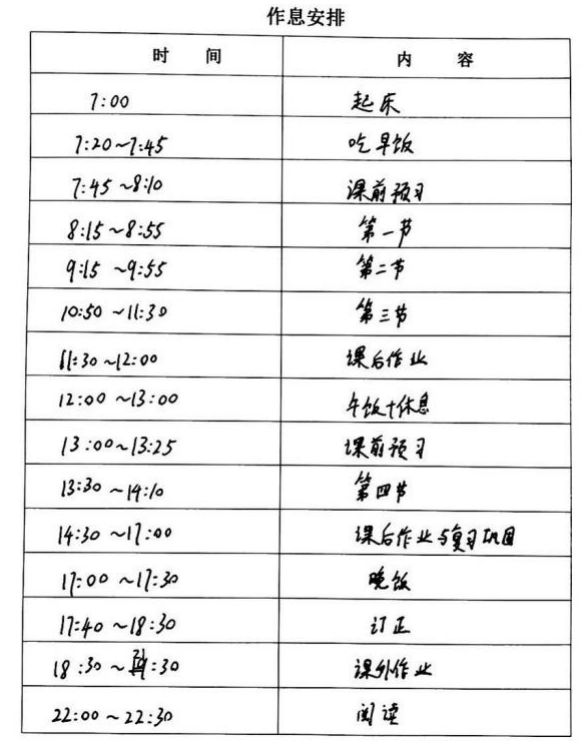 作息安排
时 间 内 容
7:00 起床
7:20~7:45 吃早饭
7:45~8:10 课前预习
8:15~8:55 第一节
9:15~9:55 第二节
10:50~11:30 第三节
11:30~12:00 课后作业
12:00~13:00 午饭+休息
13:00~13:25 课前预习
13:30~14:10 第四节
14:30~17:00 课后作业与复习巩固
17:00~17:30 晚饭
17:40~18:30 订正
18:30~21:30 课外作业
22:00~22:30 阅读